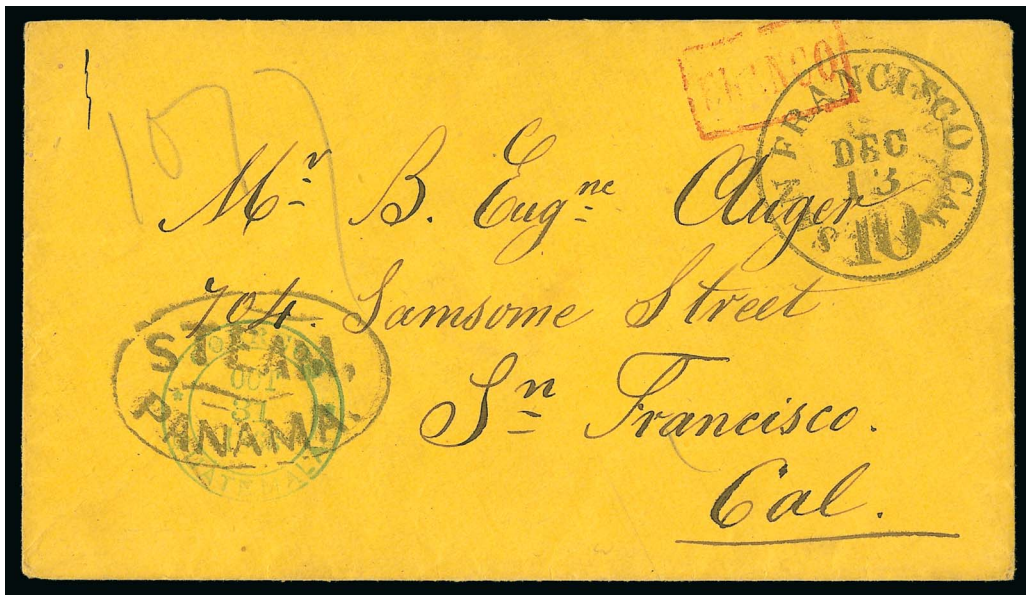 FRANCO
SAN FRANCISCO CAL.
DEC
13
10
Mr B. Eugne Auger
704. Samsome Street
Sn Francisco.
Cal.
STEAM,
PANAMA.
OCT
31
GUATEMALA